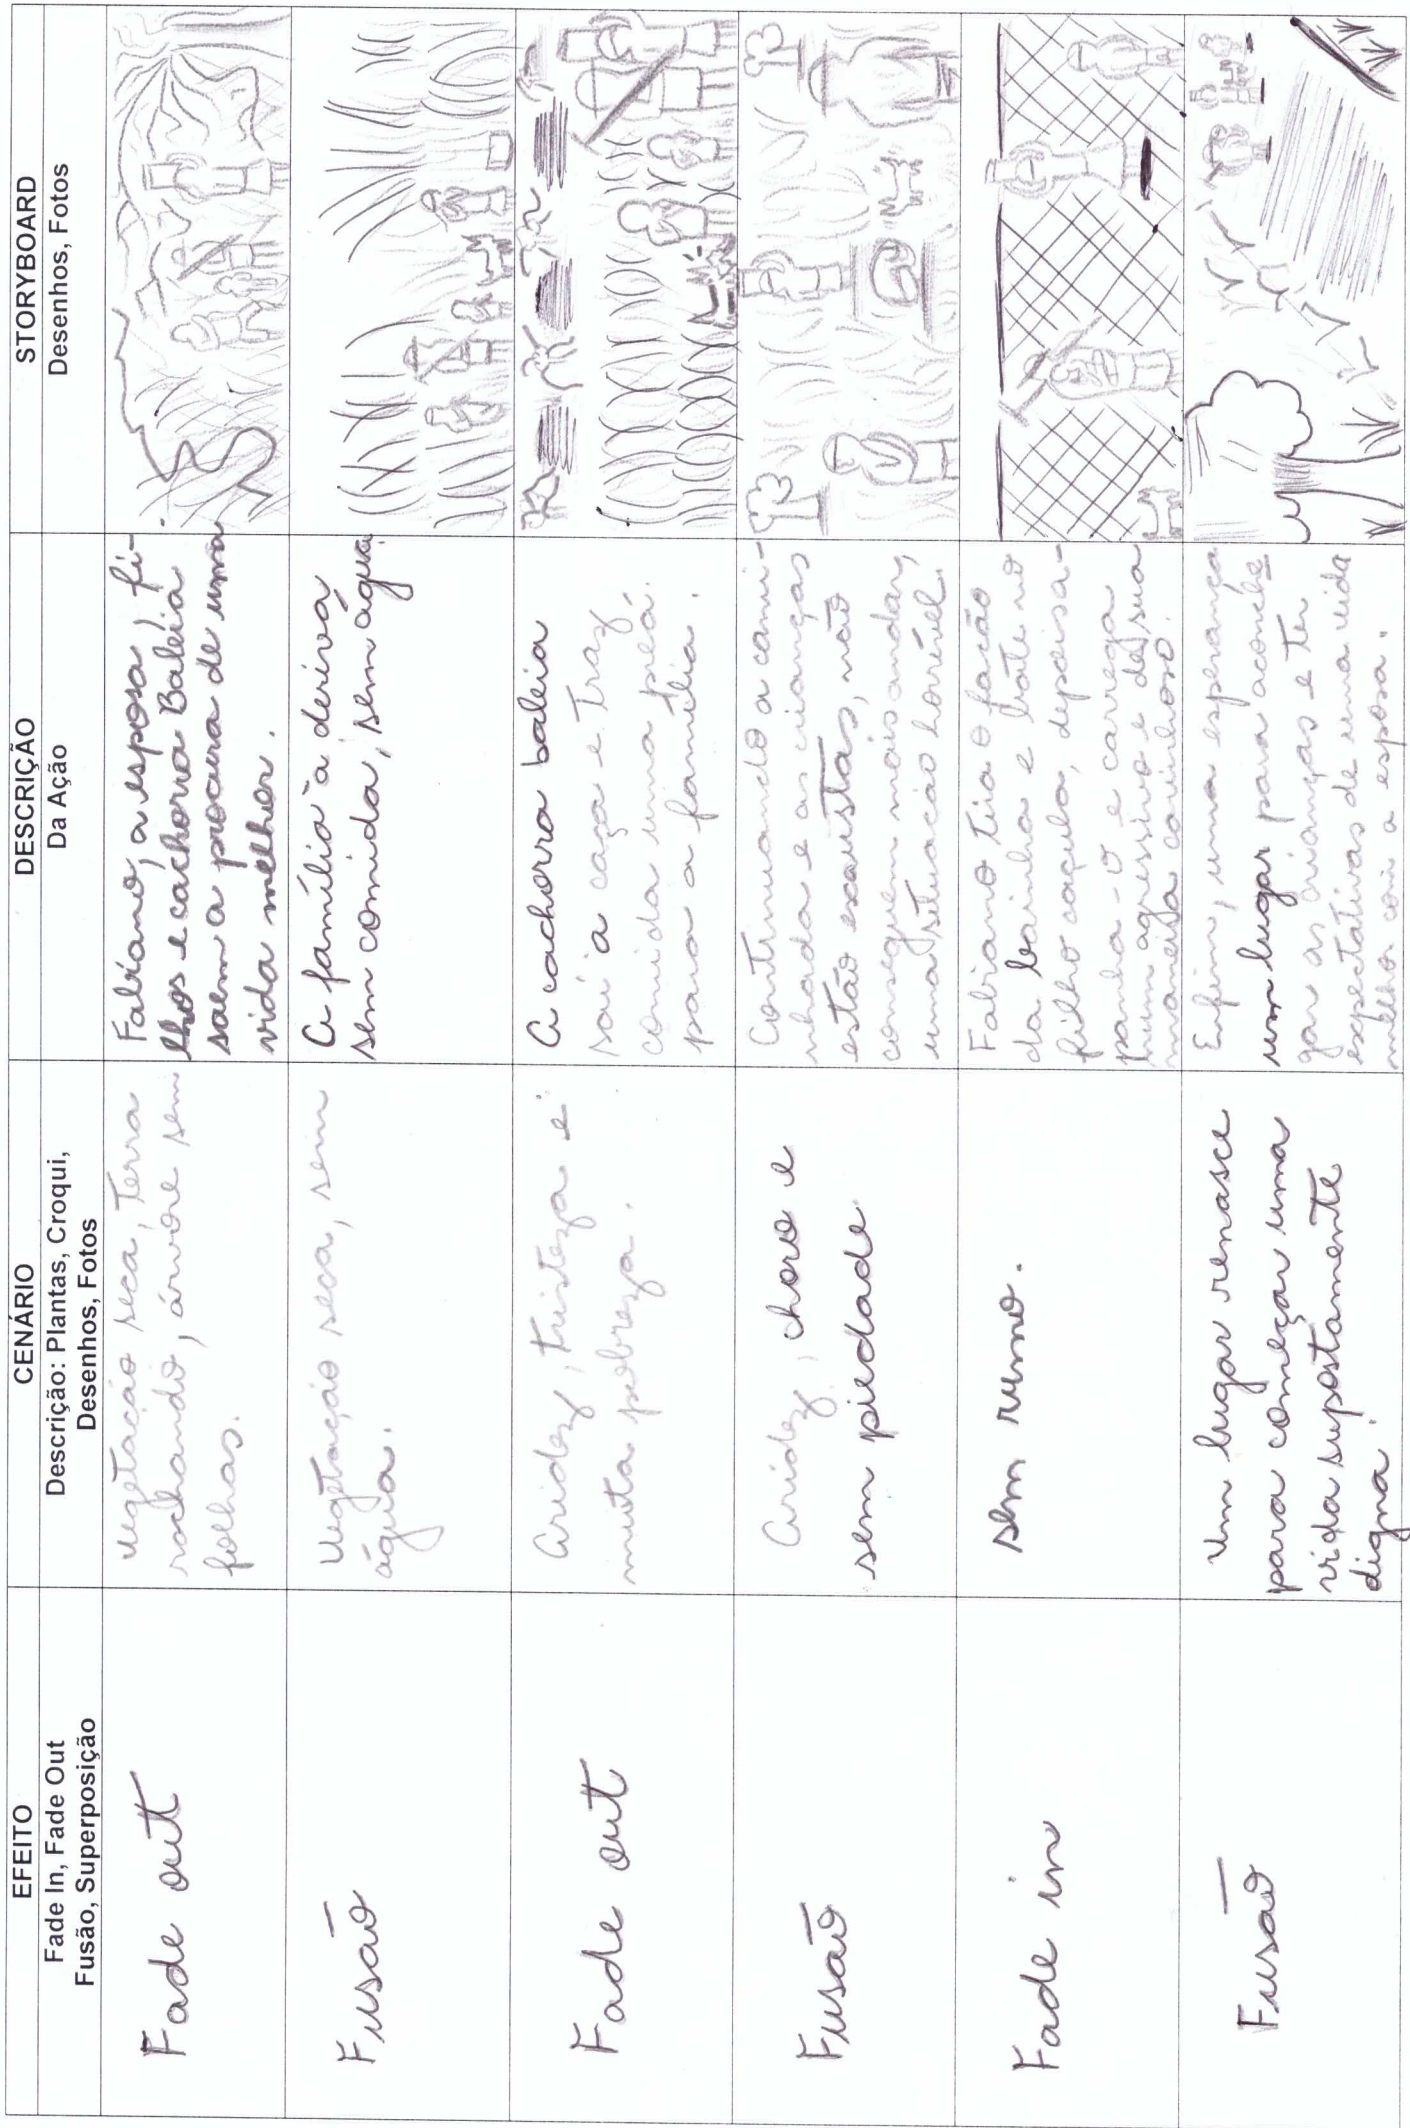 EFEITO
Fade In, Fade Out
Fusão, Superposição
CENÁRIO
Descrição: Plantas, Croqui,
Desenhos, Fotos
DESCRIÇÃO
Da Ação
STORYBOARD
Desenhos, Fotos
Fade outt
Vegetação seca, terra
rochando, árvore sem
folhas.
Fabiano, a esposa, fi-
lhos e cachorra Baleia
saem a procura de uma
vida melhor.
Fusão
Vegetação seca, sem
água.
A família à deriva
sem comida, sem água.
Fade out
Aridez, tristeza e
muita pobreza.
A cachorra baleia
sai a caça e traz
comida uma preá.
para a família.
Fusão
Aridez, choro e
sem piedade
Continuando a cami-
nhada e as crianças
estão exaustas, não
conseguem mais andar,
uma situação horrível.
Fade in
sem rumo.
Fabiano tira o facão
da bainha e bate no
filho caçula, depois a-
panha-o e carrega
num agressivo e de sua
maneira carinhoso.
Fusão
Um lugar renasce
para começar uma
vida supostamente
digna.
Enfim, uma esperança
um lugar para aconche
gar as crianças e ter
expectativas de uma vida
melhor com a esposa.